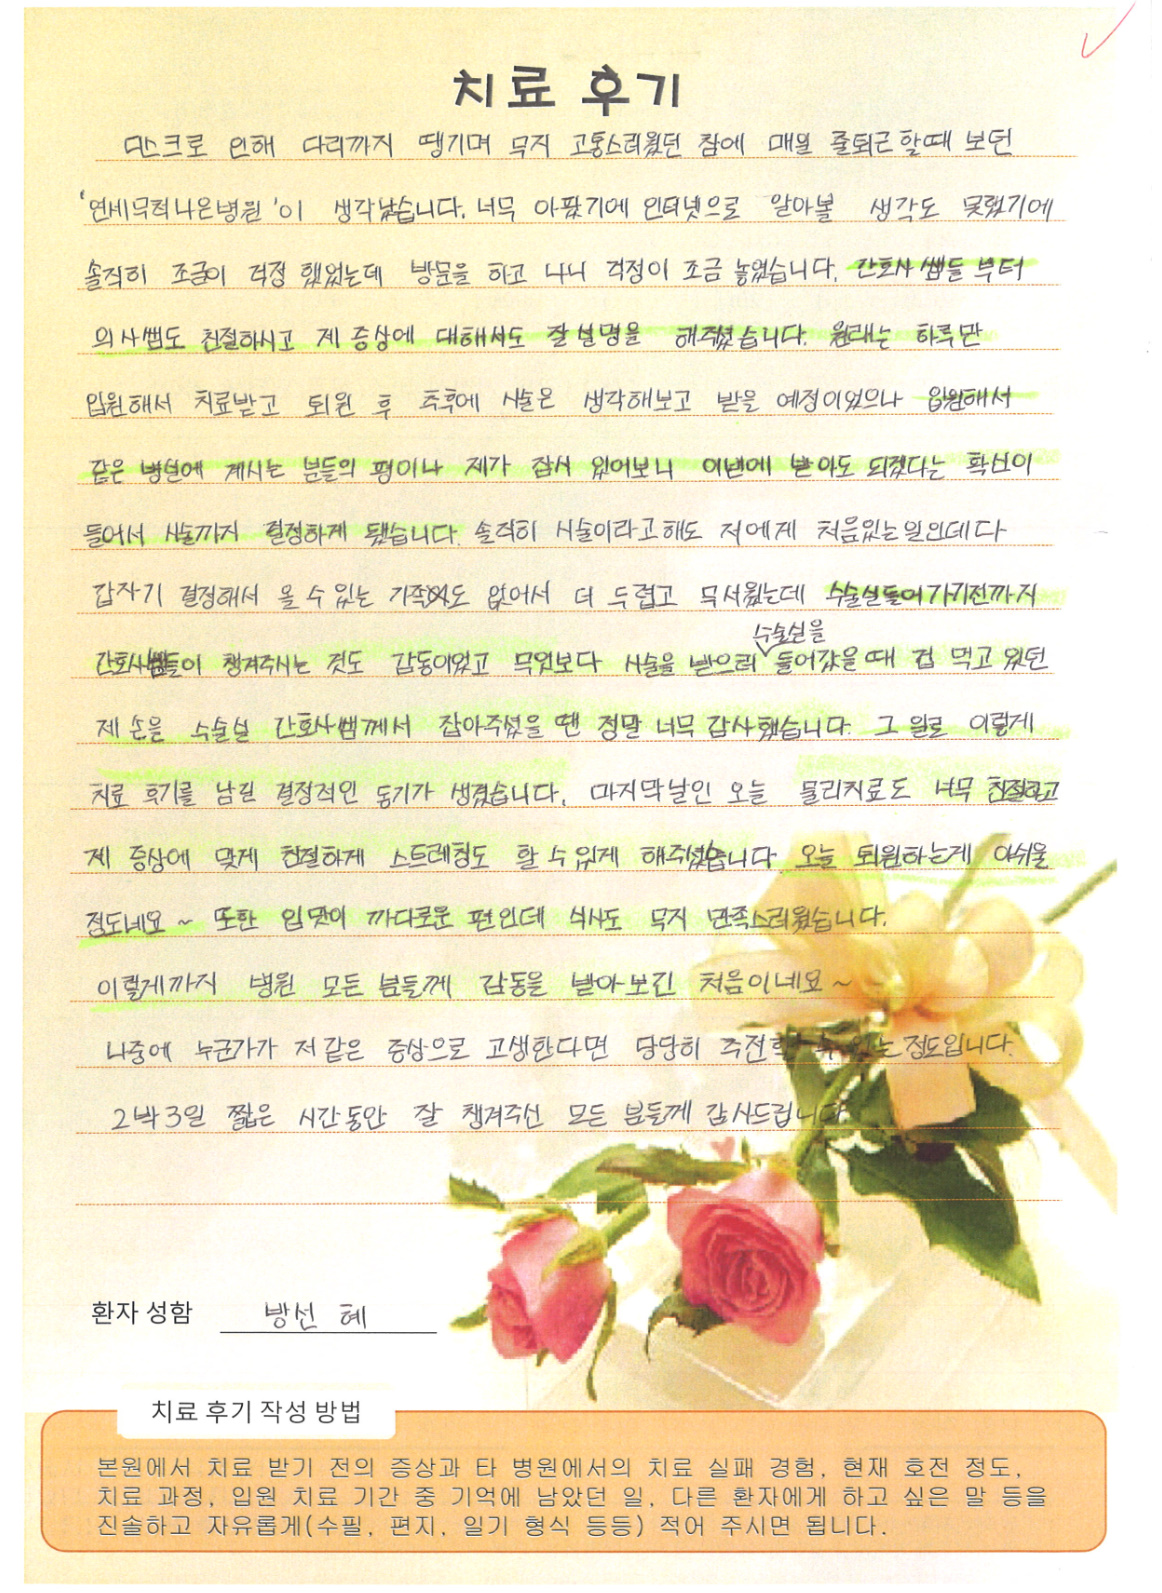 치료 후기
디스크로 인해 다리까지 땡기며 무지 고통스러웠던 참에 매일 출퇴근할때 보던
'연세무척나은병원'이 생각났습니다. 너무 아팠기에 인터넷으로 알아볼 생각도 못했기에
솔직히 조금이 걱정 했었는데 방문을 하고 나니 걱정이 조금 놓였습니다. 간호사 쌤들 부터
의사쌤도 친절하시고 제 증상에 대해서도 잘 설명을 해주셨습니다. 원래는 하루만
입원해서 치료받고 퇴원 후 추후에 시술은 생각해보고 받을 예정이었으나 입원해서
같은 병실에 계시는 분들의 평이나 제가 잠시 있어보니 이번에 받아도 되겠다는 확신이
들어서 시술까지 결정하게 됐습니다. 솔직히 시술이라고해도 저에게 처음있는일인데다
갑자기 결정해서 올 수 있는 가족도 없어서 더 두렵고 무서웠는데 수술실들어가기전까지
간호사쌤들이 챙겨주시는 것도 감동이었고 무엇보다 시술을 받으러 수술실을 들어갔을때 겁 먹고 있던
제 손을 수술실 간호사쌤께서 잡아주셨을 땐 정말 너무 감사했습니다. 그 일로 이렇게
치료 후기를 남길 결정적인 동기가 생겼습니다. 마지막날인 오늘 물리치료도 너무 친절하고
제 증상에 맞게 친절하게 스트레칭도 할 수 있게 해주셨습니다. 오늘 퇴원하는게 아쉬울
정도네요 ~ 또한 입맛이 까다로운 편인데 식사도 무지 만족스러웠습니다.
이렇게까지 병원 모든 분들께 감동을 받아보긴 처음이네요 ~
나중에 누군가가 저같은 증상으로 고생한다면 당당히 추천할 수 있는 정도입니다.
2박3일 짧은 시간동안 잘 챙겨주신 모든 분들께 감사드립니다
환자 성함 방선혜
치료 후기 작성 방법
본원에서 치료 받기 전의 증상과 타 병원에서의 치료 실패 경험, 현재 호전 정도,
치료 과정, 입원 치료 기간 중 기억에 남았던 일, 다른 환자에게 하고 싶은 말 등을
진솔하고 자유롭게(수필, 편지, 일기 형식 등등) 적어 주시면 됩니다.